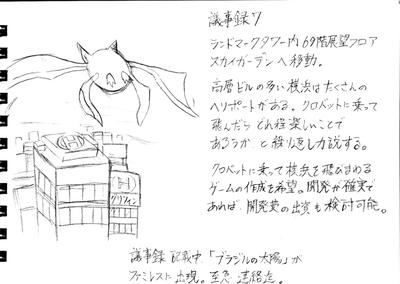 議事録7
ランドマークタワー内69階展望フロア
スカイガーデンへ移動。
高層ビルの多い横浜はたくさんの
ヘリポートがある。クロバットに乗って
飛んだら どれ程楽しいことで
あろうか と繰り返し力説する。
クロバットに乗って横浜を飛びまわる
ゲームの作成を希望。開発が確実で
あれば、開発費の出資も検討可能。
H
H
グリフィン
議事録 記載中「ブラジルの太陽」が
ファミレスに出現。至急 連絡迄。